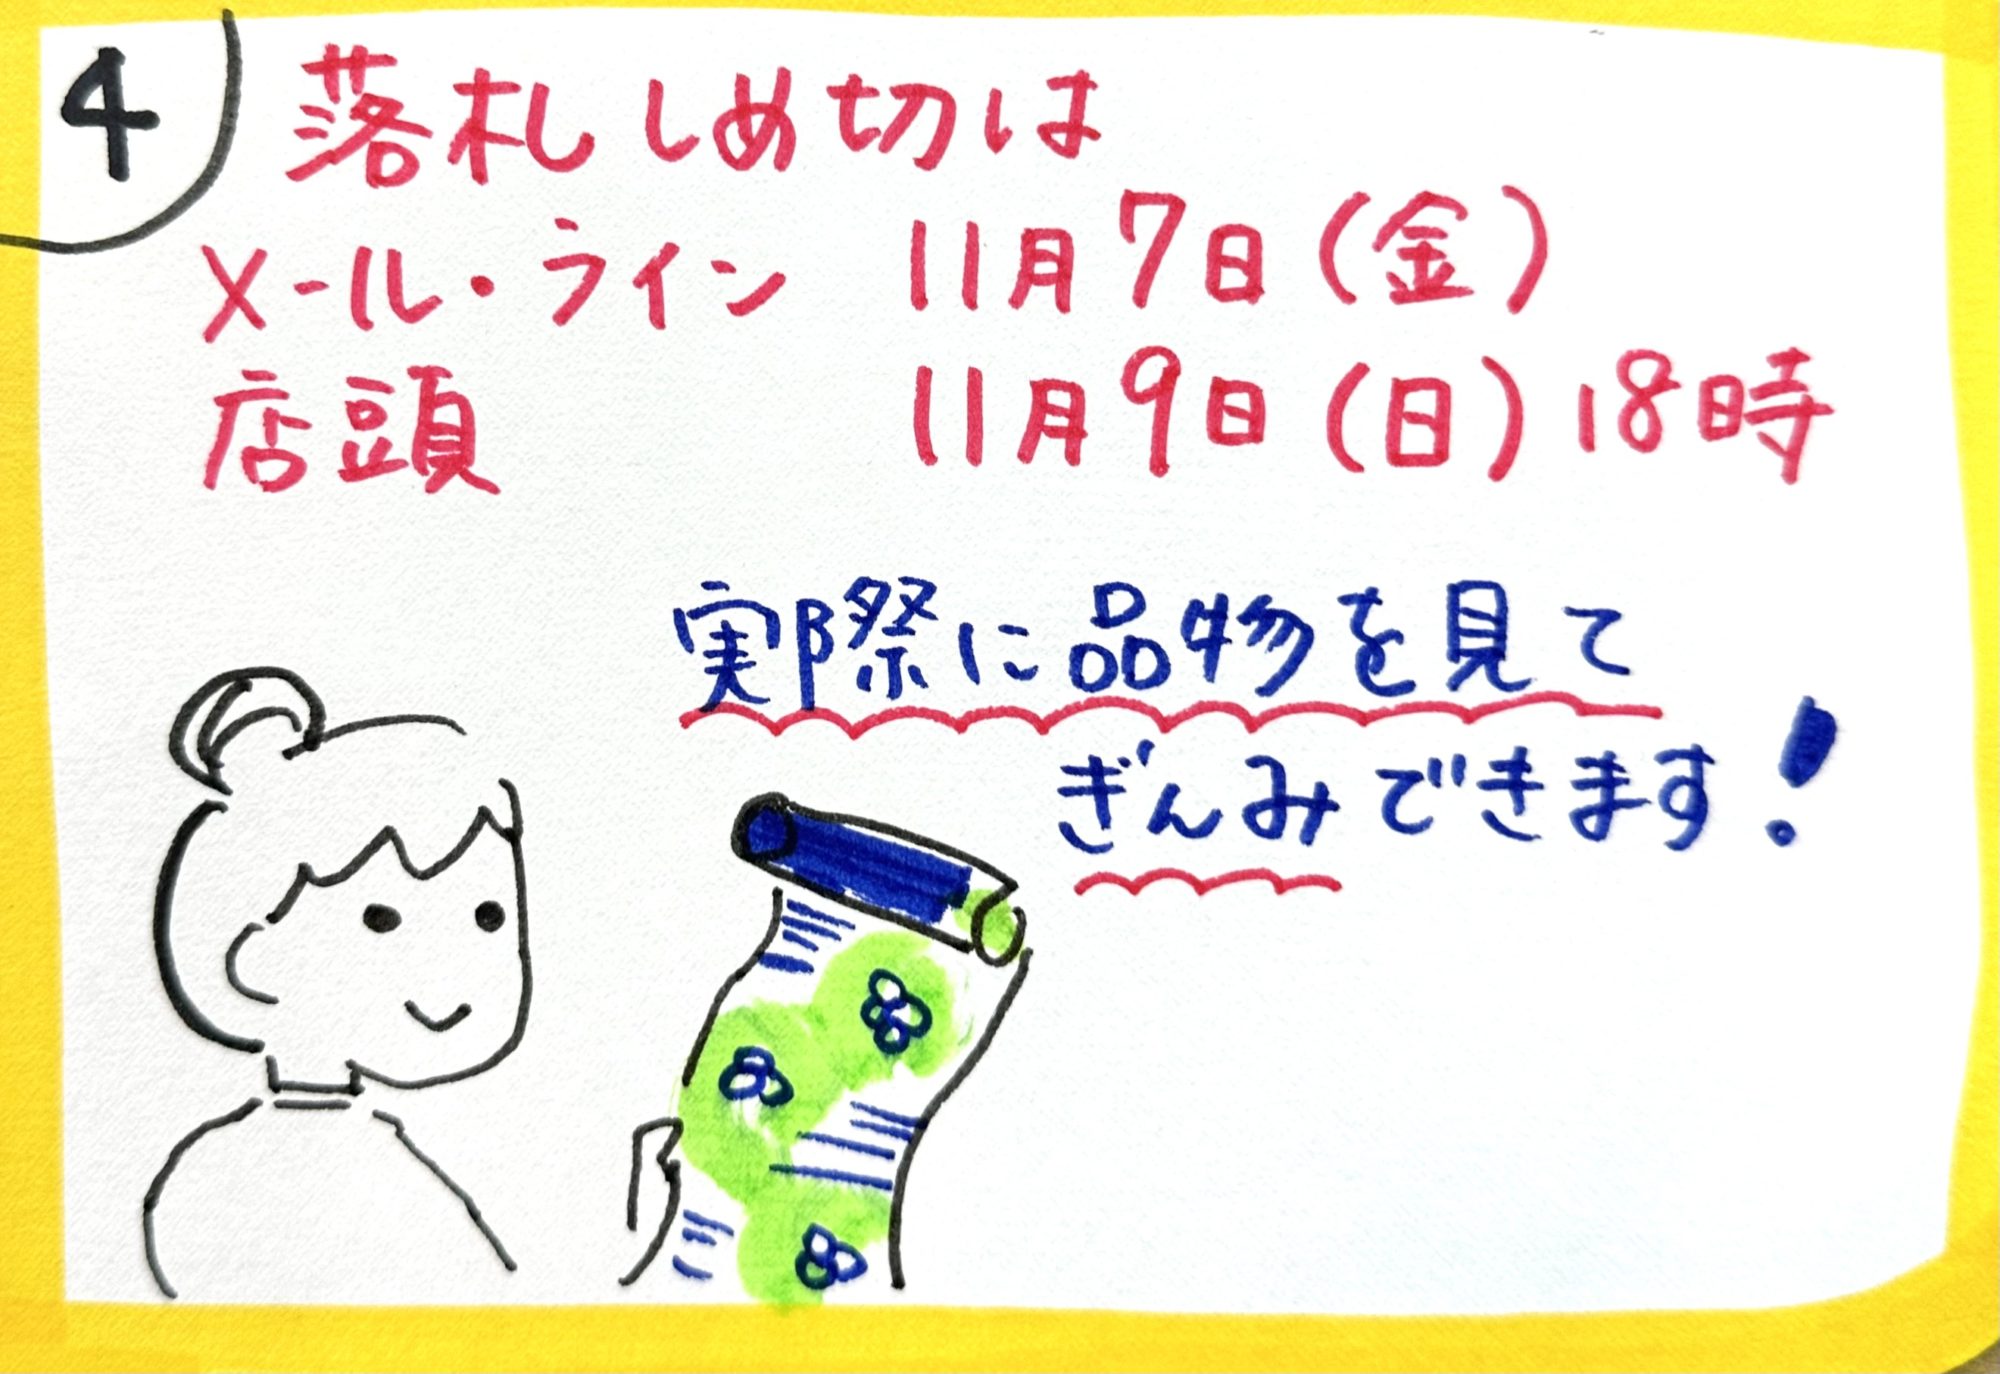 4
落札しめ切は
メール・ライン 11月7日(金)
店頭 11月9日(日)18時
実際に品物を見て
ぎんみできます!